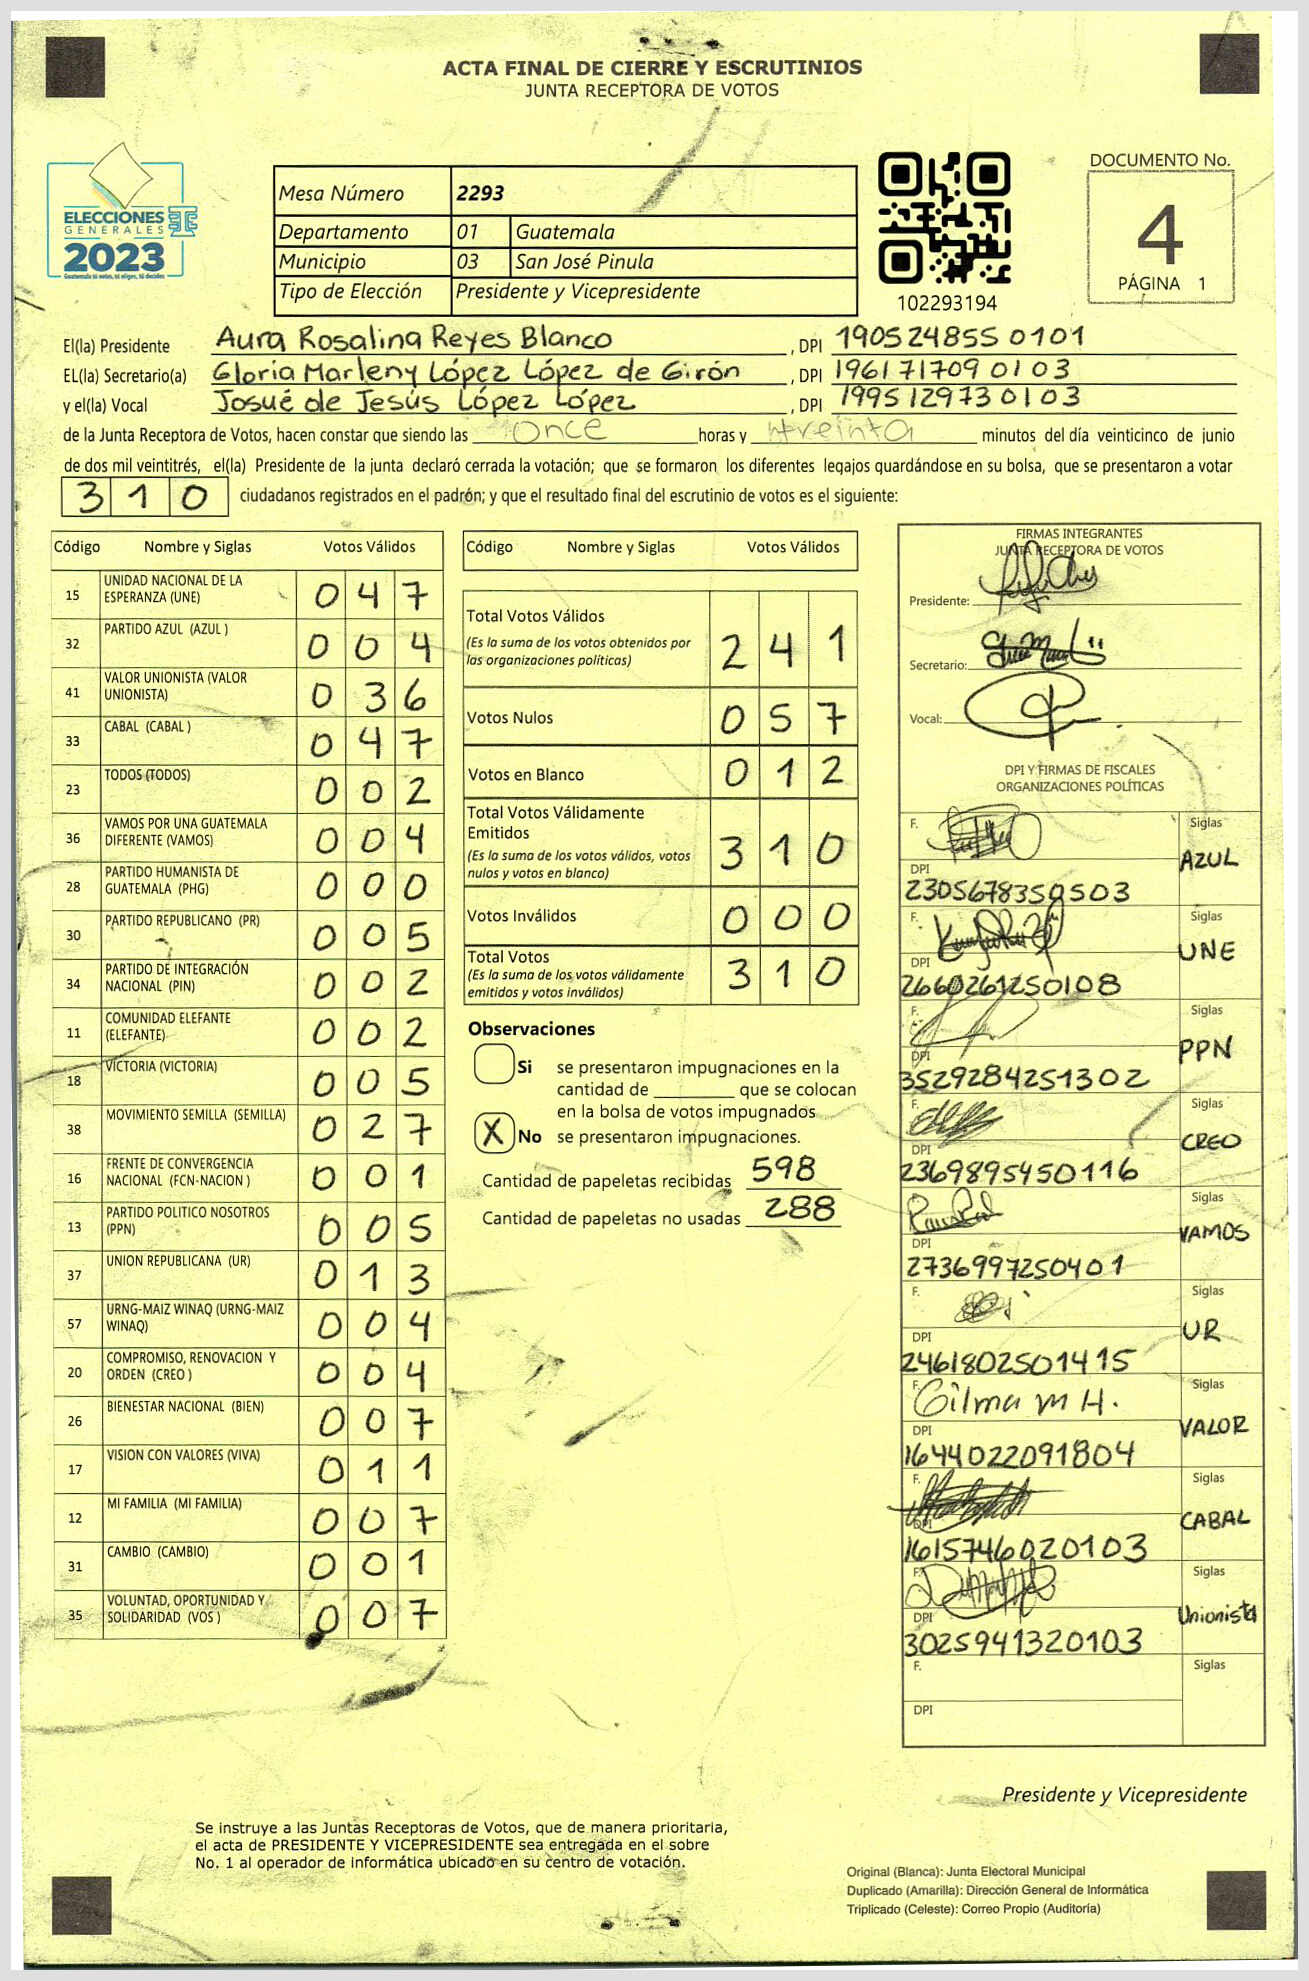 ACTA FINAL DE CIERRE Y ESCRUTINIOS
JUNTA RECEPTORA DE VOTOS
ELECCIONES
GENERALES
2023
Mesa Número 2293
Departamento 01 Guatemala
Municipio 03 San José Pinula
Tipo de Elección Presidente y Vicepresidente
102293194
DOCUMENTO No.
4
PÁGINA 1
El(la) Presidente Aura Rosalina Reyes Blanco , DPI 190524855 0101
EL(la) Secretario(a) Gloria Marleny López López de Girón , DPI 196171709 0103
y el(la) Vocal Josué de Jesús López López , DPI 199512973 0103
de la Junta Receptora de Votos, hacen constar que siendo las once horas y treinta minutos del día veinticinco de junio
de dos mil veintitrés, el(la) Presidente de la junta declaró cerrada la votación; que se formaron los diferentes legajos quardándose en su bolsa, que se presentaron a votar
310 ciudadanos registrados en el padrón; y que el resultado final del escrutinio de votos es el siguiente:
Código Nombre y Siglas Votos Válidos
15 UNIDAD NACIONAL DE LA ESPERANZA (UNE) 047
32 PARTIDO AZUL (AZUL ) 004
41 VALOR UNIONISTA (VALOR UNIONISTA) 036
33 CABAL (CABAL ) 047
23 TODOS (TODOS) 002
36 VAMOS POR UNA GUATEMALA DIFERENTE (VAMOS) 004
28 PARTIDO HUMANISTA DE GUATEMALA (PHG) 000
30 PARTIDO REPUBLICANO (PR) 005
34 PARTIDO DE INTEGRACIÓN NACIONAL (PIN) 002
11 COMUNIDAD ELEFANTE (ELEFANTE) 002
18 VICTORIA (VICTORIA) 005
38 MOVIMIENTO SEMILLA (SEMILLA) 027
16 FRENTE DE CONVERGENCIA NACIONAL (FCN-NACION ) 001
13 PARTIDO POLITICO NOSOTROS (PPN) 005
37 UNION REPUBLICANA (UR) 013
57 URNG-MAIZ WINAQ (URNG-MAIZ WINAQ) 004
20 COMPROMISO, RENOVACION Y ORDEN (CREO ) 004
26 BIENESTAR NACIONAL (BIEN) 007
17 VISION CON VALORES (VIVA) 011
12 MI FAMILIA (MI FAMILIA) 007
31 CAMBIO (CAMBIO) 001
35 VOLUNTAD, OPORTUNIDAD Y SOLIDARIDAD (VOS ) 007
Código Nombre y Siglas Votos Válidos
Total Votos Válidos 241
(Es la suma de los votos obtenidos por
las organizaciones políticas)
Votos Nulos 057
Votos en Blanco 012
Total Votos Válidamente
Emitidos 310
(Es la suma de los votos válidos, votos
nulos y votos en blanco)
Votos Inválidos 000
Total Votos 310
(Es la suma de los votos válidamente
emitidos y votos inválidos)
Observaciones
Si se presentaron impugnaciones en la
cantidad de que se colocan
en la bolsa de votos impugnados
X No se presentaron impugnaciones.
Cantidad de papeletas recibidas 598
Cantidad de papeletas no usadas 288
FIRMAS INTEGRANTES
JUNTA RECEPTORA DE VOTOS
Presidente:
Secretario:
Vocal:
DPI Y FIRMAS DE FISCALES
ORGANIZACIONES POLÍTICAS
F. Siglas
AZUL
DPI
2305678350503
F. Siglas
UNE
DPI
2660261250108
F. Siglas
PPN
DPI
3529284251302
F. Siglas
CREO
DPI
2369895450116
Siglas
VAMOS
DPI
2736997250401
F. Siglas
UR
DPI
2461802501415
F. Gilma M H. Siglas
VALOR
DPI
1644022091804
F. Siglas
CABAL
DPI
1615746020103
F. Siglas
Unionista
DPI
3025941320103
F. Siglas
DPI
Presidente y Vicepresidente
Se instruye a las Juntas Receptoras de Votos, que de manera prioritaria,
el acta de PRESIDENTE Y VICEPRESIDENTE sea entregada en el sobre
No. 1 al operador de informática ubicado en su centro de votación.
Original (Blanca): Junta Electoral Municipal
Duplicado (Amarilla): Dirección General de Informática
Triplicado (Celeste): Correo Propio (Auditoría)